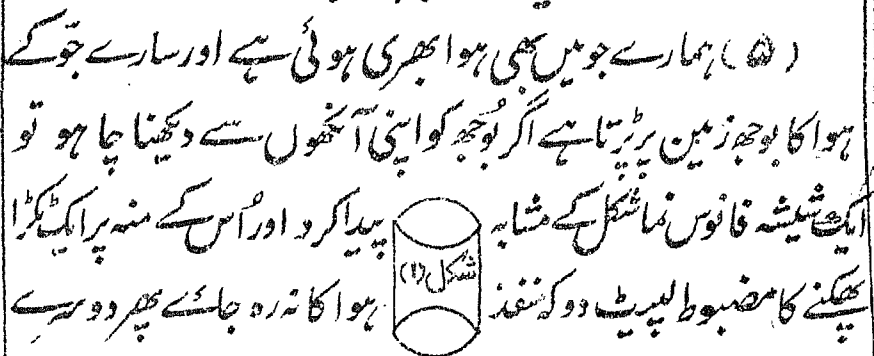 (۵) ہمارے جو میں بھی ہوا بھری ہوئی ہے اور سارے جوّ کے
ہوا کا بوجھ زمین پر پڑتا ہے اگر بُوجھ کو اپنی آنکھوں سے دیکھنا چاہو تو
ایک شیشہ فانوس نما شکل کے مشابہ پیدا کرو اور اُس کے منہ پر ایک ٹکڑا
شکل (۱)
پھکنے کا مضبوط لپیٹ دو کہ منفذ ہوا کا نہ رہ جائے پھر دوسرے